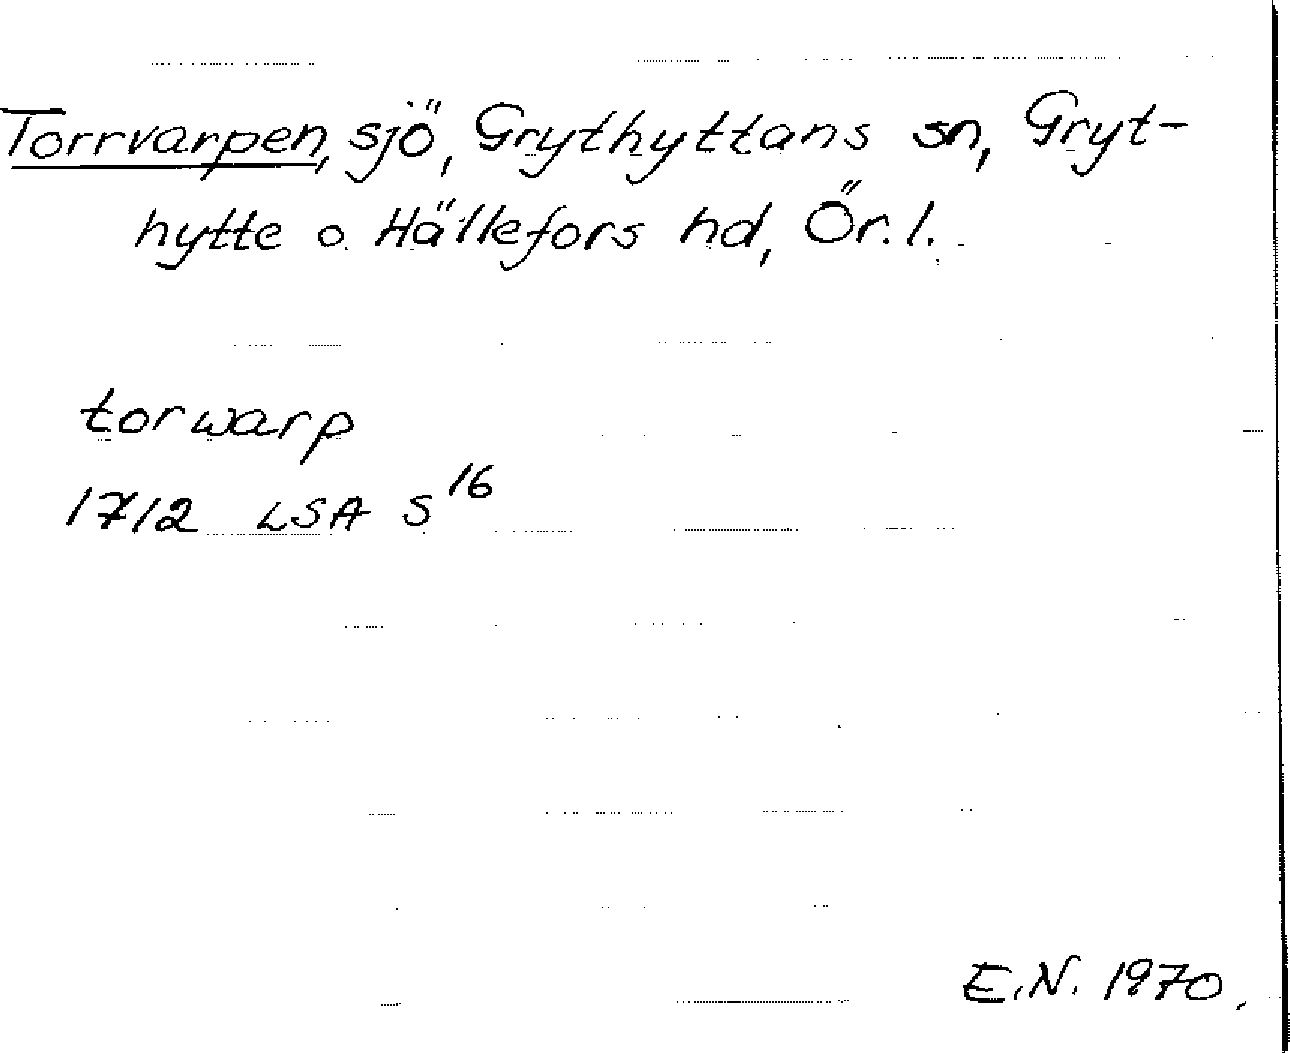 Torrvarpen, sjö, Grythyttans sn, Gryt-
hytte o. Hällefors hd, Ör. l.
torwarp
1712 LSA S 16
E.N. 1970.